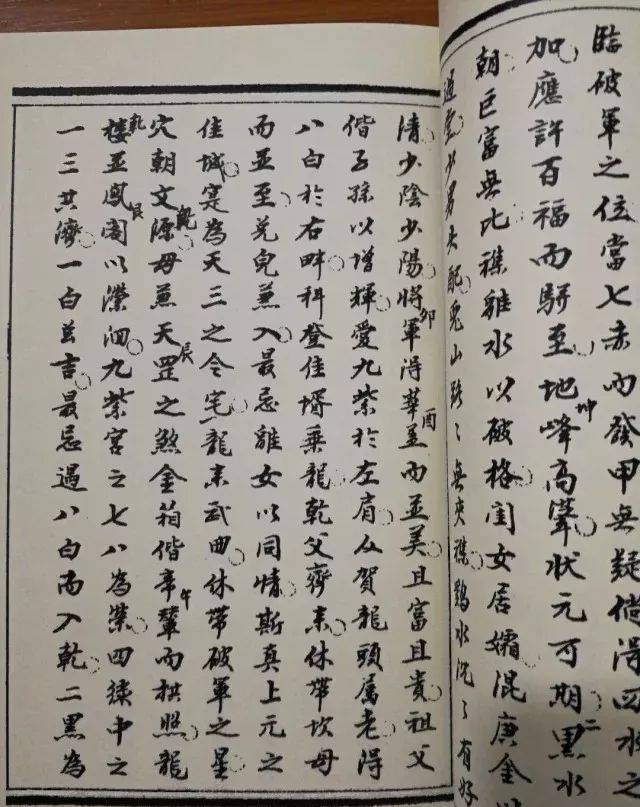 臨破軍之位當七赤而發甲無疑倘得四水之
加應許百福而駢至地峰高聳狀元可期黑水
朝巨富無比襍離水以破格閨女居孀混庚金
過堂少男大配兎山路之無夾襍鷄水汎之有
清少陰少陽將軍得華盖而並美且富且貴祖父
偕子孫以增輝愛九紫於左肩入賀龍頭屬老得
八白於右畔科登佳壻乘龍乾父齊來休帶坎母
而並至兑兒兼入最忌離女以同情斯真上元之
佳城寔為天三之令宅龍來武曲休帶破軍之星
穴朝文源毋兼天罡之煞金箱偕帝輦而拱照龍
樓並鳳閣以瀠洄九紫宮之七八為榮四綠中之
一三共濟一白並吉最忌過八白而入乾二黑為
坤
二
卯
酉
辰
乾
午
乾
艮